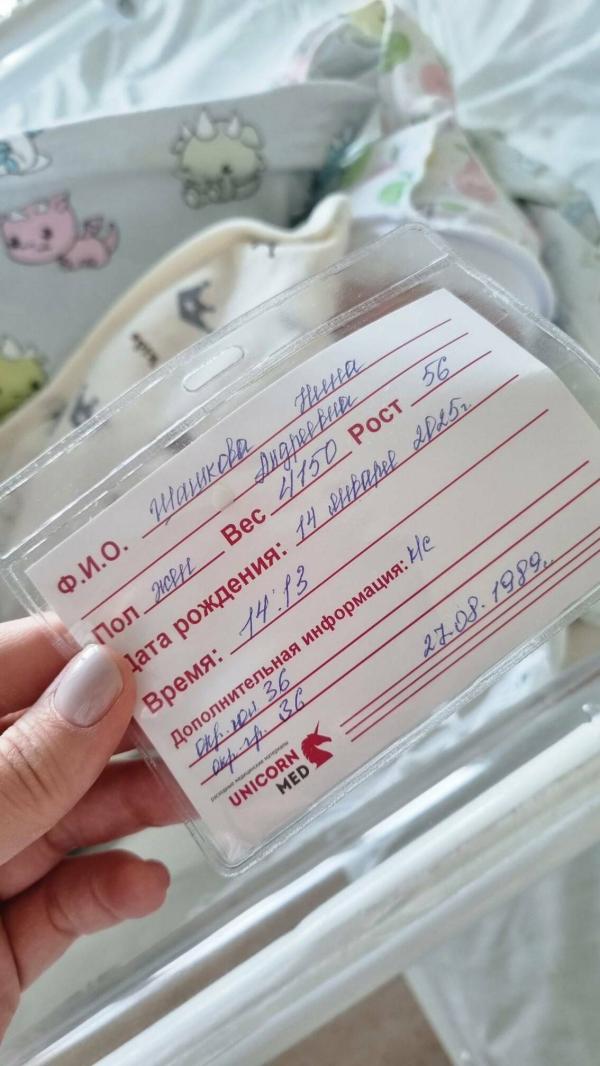 Ф.И.О. Шашкова Нина
Андреевна
Пол жен Вес 4150 Рост 56
Дата рождения: 14 января 2025г.
Время: 14:13
Дополнительная информация: к/с
окр. гол 36
окр. гр. 36
27.08.1989г.
расходные медицинские материалы
UNICORN
MED